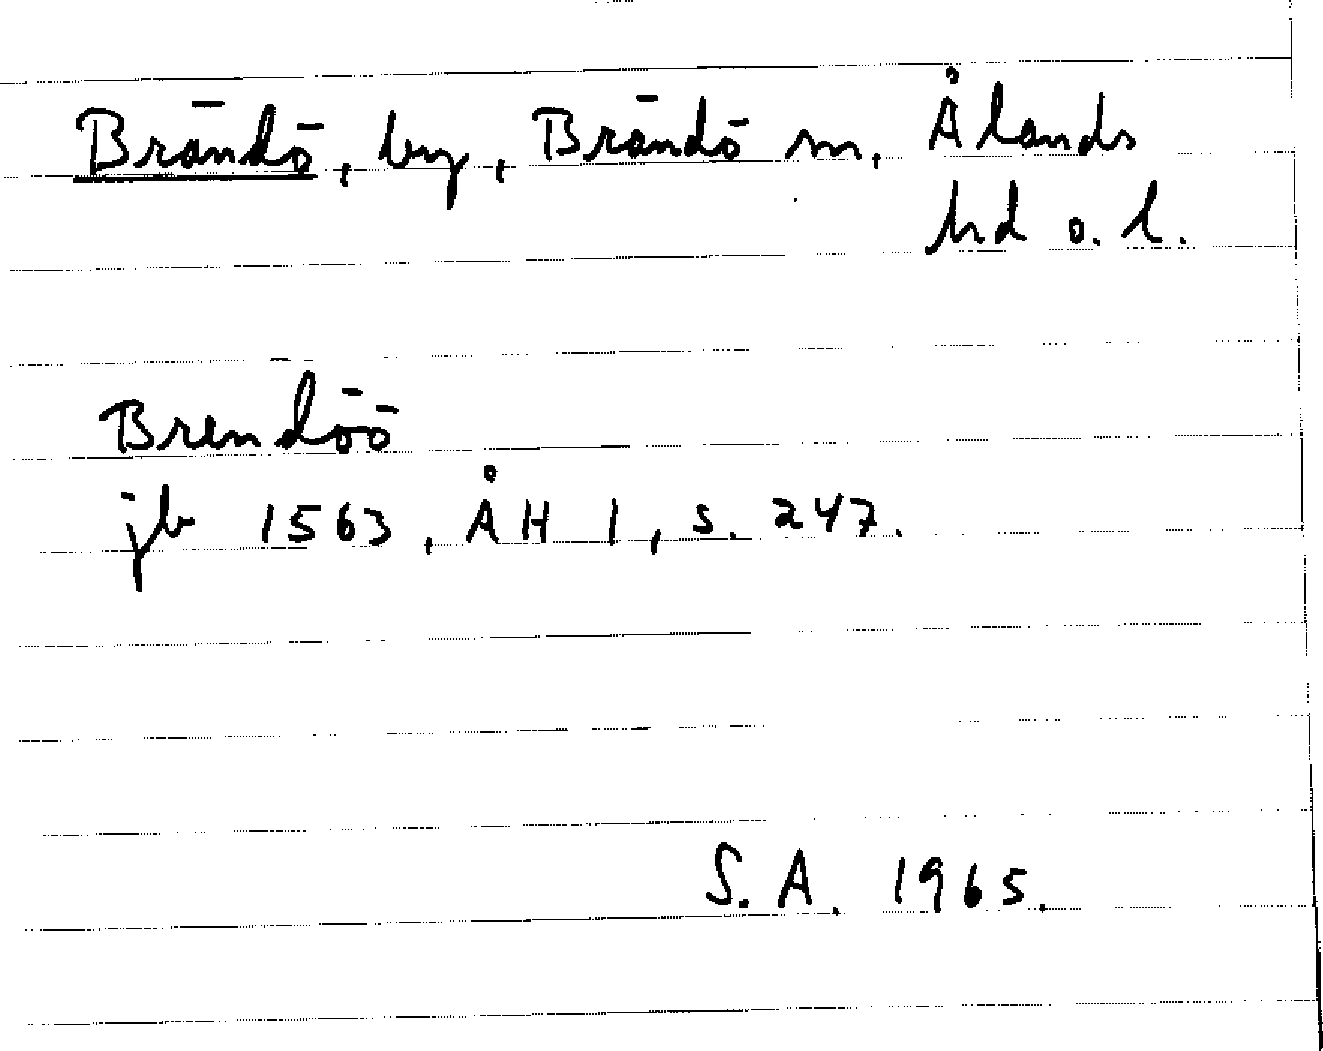 Brändö, by, Brändö m, Ålands
hd o. l.
Brendöö
jb 1563, ÅH 1, s. 247.
S. A. 1965.